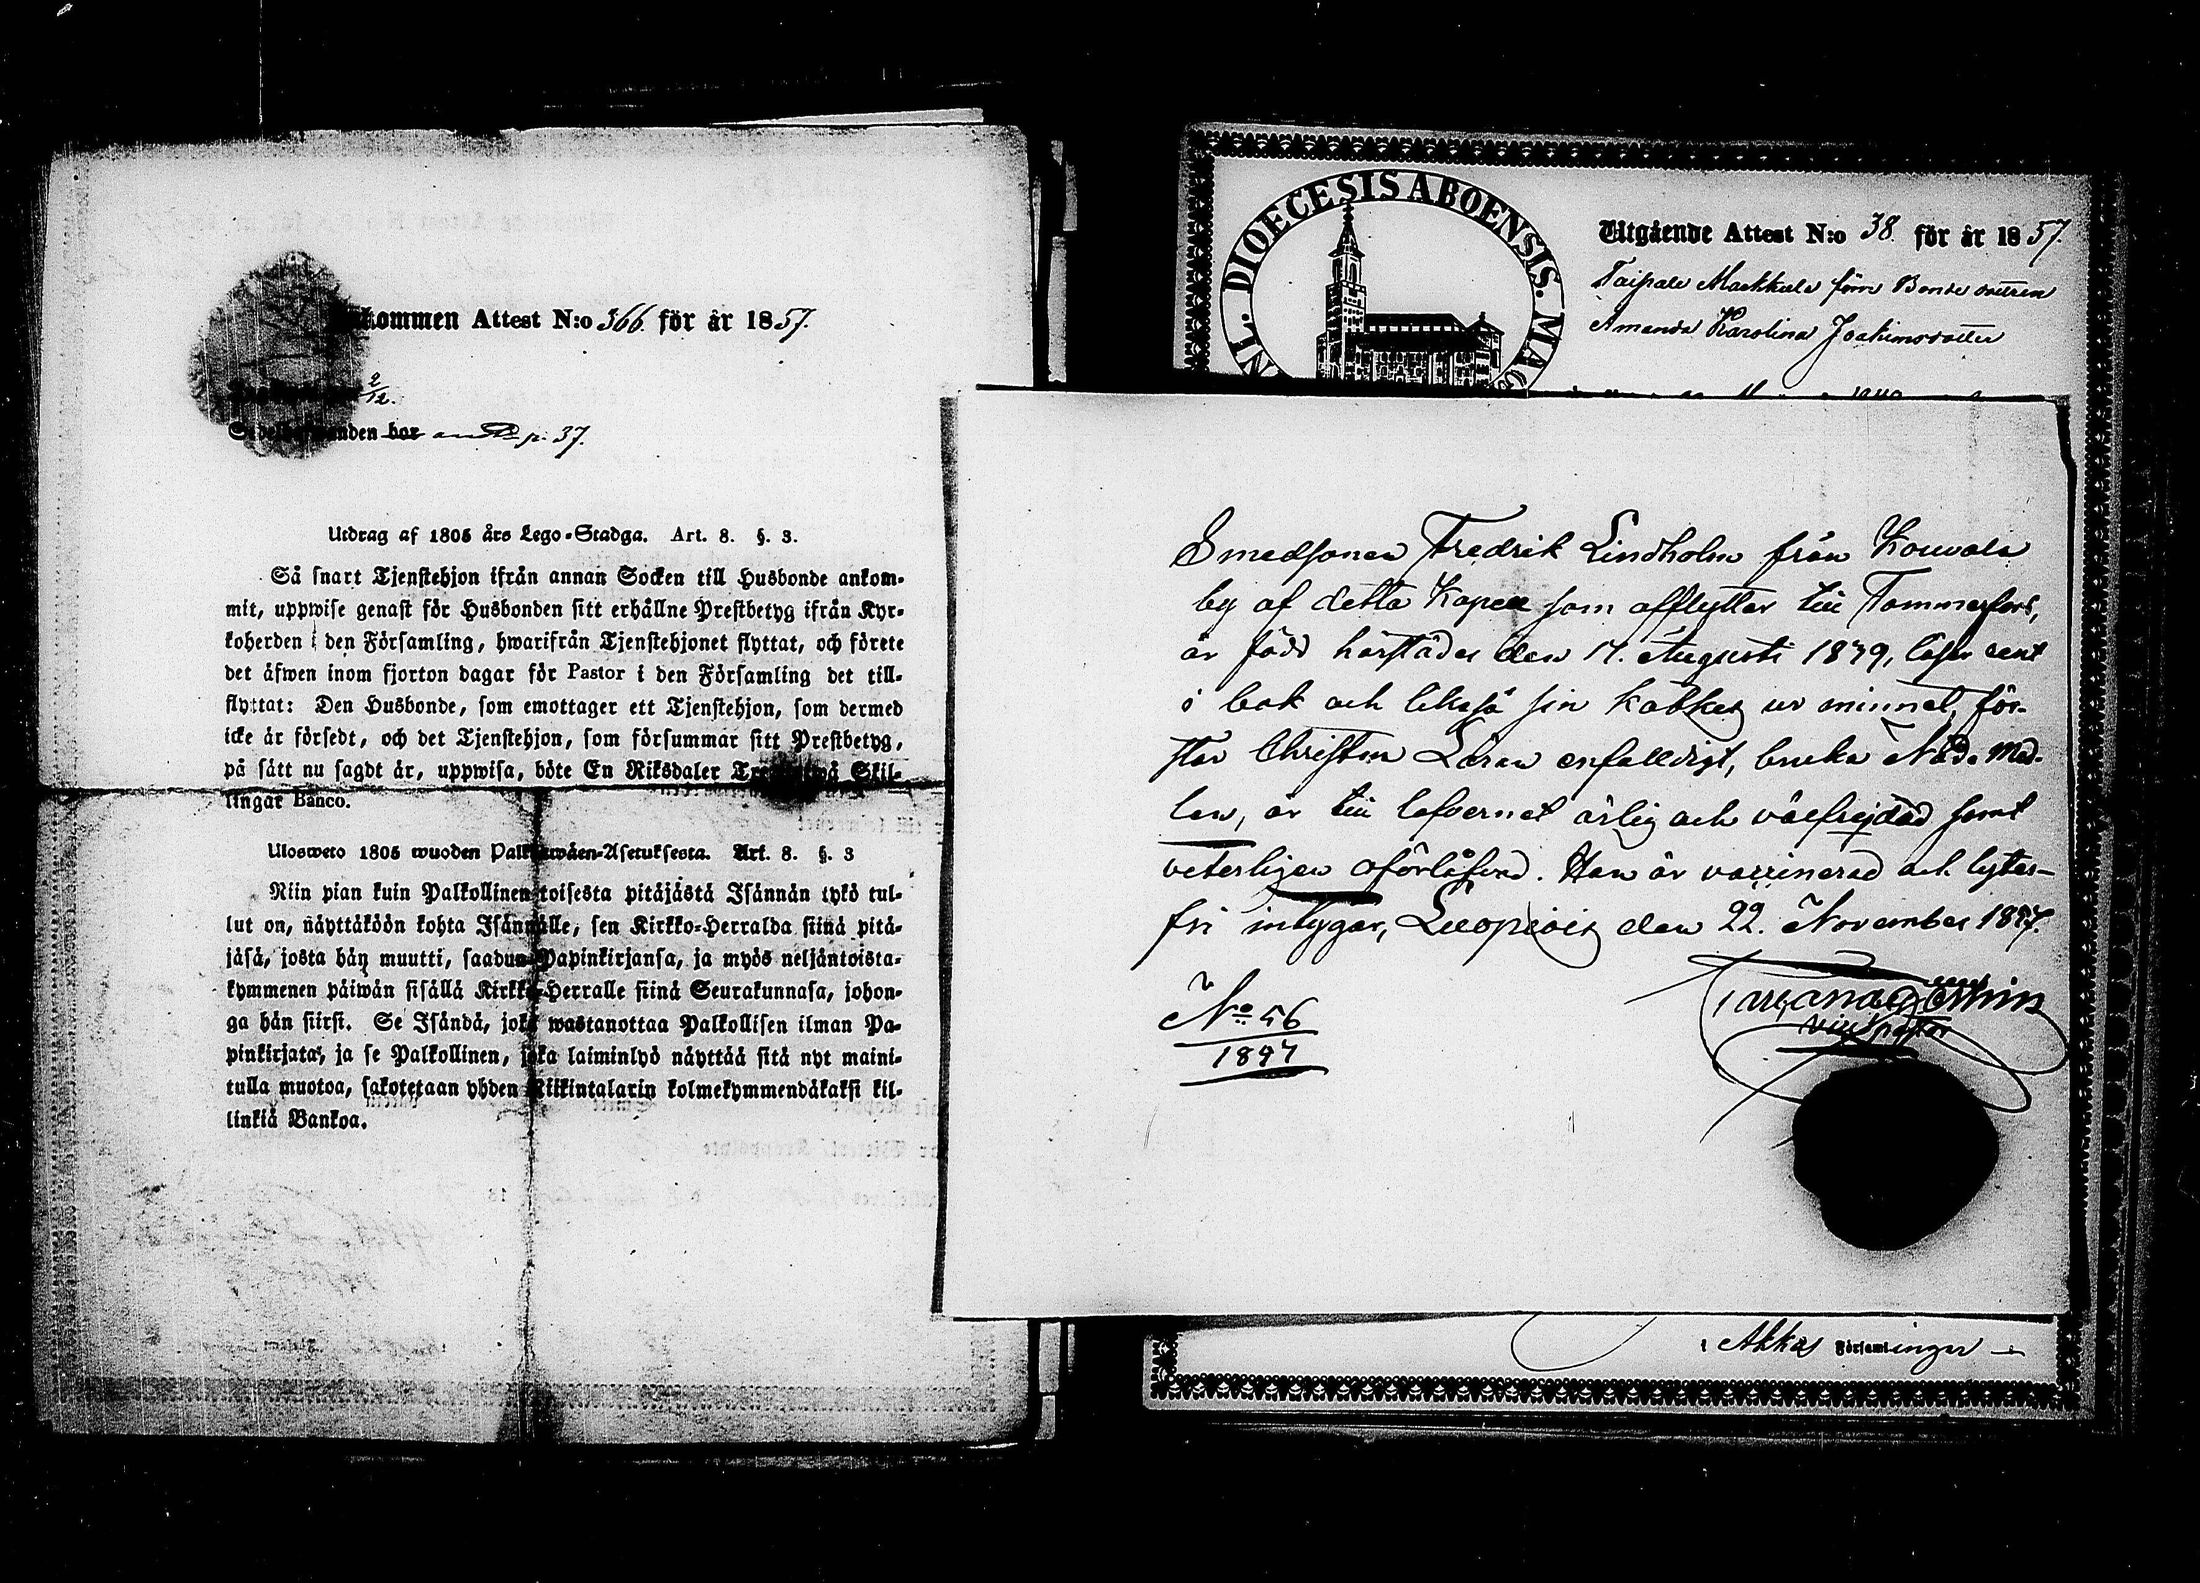 kommen Attest N:o 366 för år 1857.
2/12.
anden bor p. 37.
Utdrag af 1805 års Lego-Stadga. Art. 8. §. 3.
Så snart Tjenstehjon ifrån annan Socken till Husbonde ankom-
mit, uppwise genast för Husbonden sitt erhållne Prestbetyg ifrån Kyr-
koherden i den Församling, hwarifrån Tjenstehjonet flyttat, och förete
det äfwen inom fjorton dagar för Pastor i den Församling det till-
flyttat: Den Husbonde, som emottager ett Tjenstehjon, som dermed
icke är försedt, och det Tjenstehjon, som försummar sitt Prestbetyg,
på sätt nu sagdt är, uppwisa, böte En Riksdaler Skil-
lingar Banco.
Ulosweto 1805 wuoden Palkkawäen-Asetuksesta. Art. 8. §. 3
Niin pian kuin Palkollinen toisesta pitäjästä Isännän tykö tul-
lut on, näyttäköön kohta Isännälle, sen Kirkko-Herralda siinä pitä-
jäsä, josta hän muutti, saadun Papinkirjansa, ja myös neljäntoista-
kymmenen päiwän sisällä Kirkko-Herralle siinä Seurakunnasa, johon-
ga hän siirsi. Se Isändä, joka wastanottaa Palkollisen ilman Pa-
pinkirjata, ja se Palkollinen, joka laiminlyö näyttää sitä nyt maini-
tulla muotoa, sakotetaan yhden Riikintalarin kolmekymmendäkaksi kil-
linkiä Bankoa.
NL. DIOECESIS ABOENSIS. MAG
Utgående Attest N:o 38. för år 1857.
Taipale Markkula förre Bonde dottren
Amanda Karolina Joakimsdotter
Smedsonen Fredrik Lindholm från Kouvola
by af detta Kapell som afflyttar till Tammerfors,
är född härstädes den 17. Augusti 1839, läser rent
i bok och likaså sin katkes ur minnet, för-
står Christen Läran enfalldigt, bruka Nåde Med-
len, är till lefvernet ärlig och välfrejdad samt
veterligen oförlofvad. Han är vaccinerad och lytes-
fri intygar, Luopiois den 22. November 1857.
No 56
1857
vice pastor
Akkas Församlinger